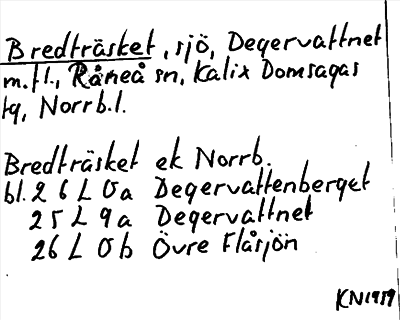 Bredträsket, sjö, Degervattnet
m.fl., Råneå sn, Kalix Domsagas
tg, Norrb.l.
Bredträsket ek Norrb.
bl. 26 L 0a Degervattenberget
25 L 9a Degervattnet
26 L 0b Övre Flåsjön
KN1979